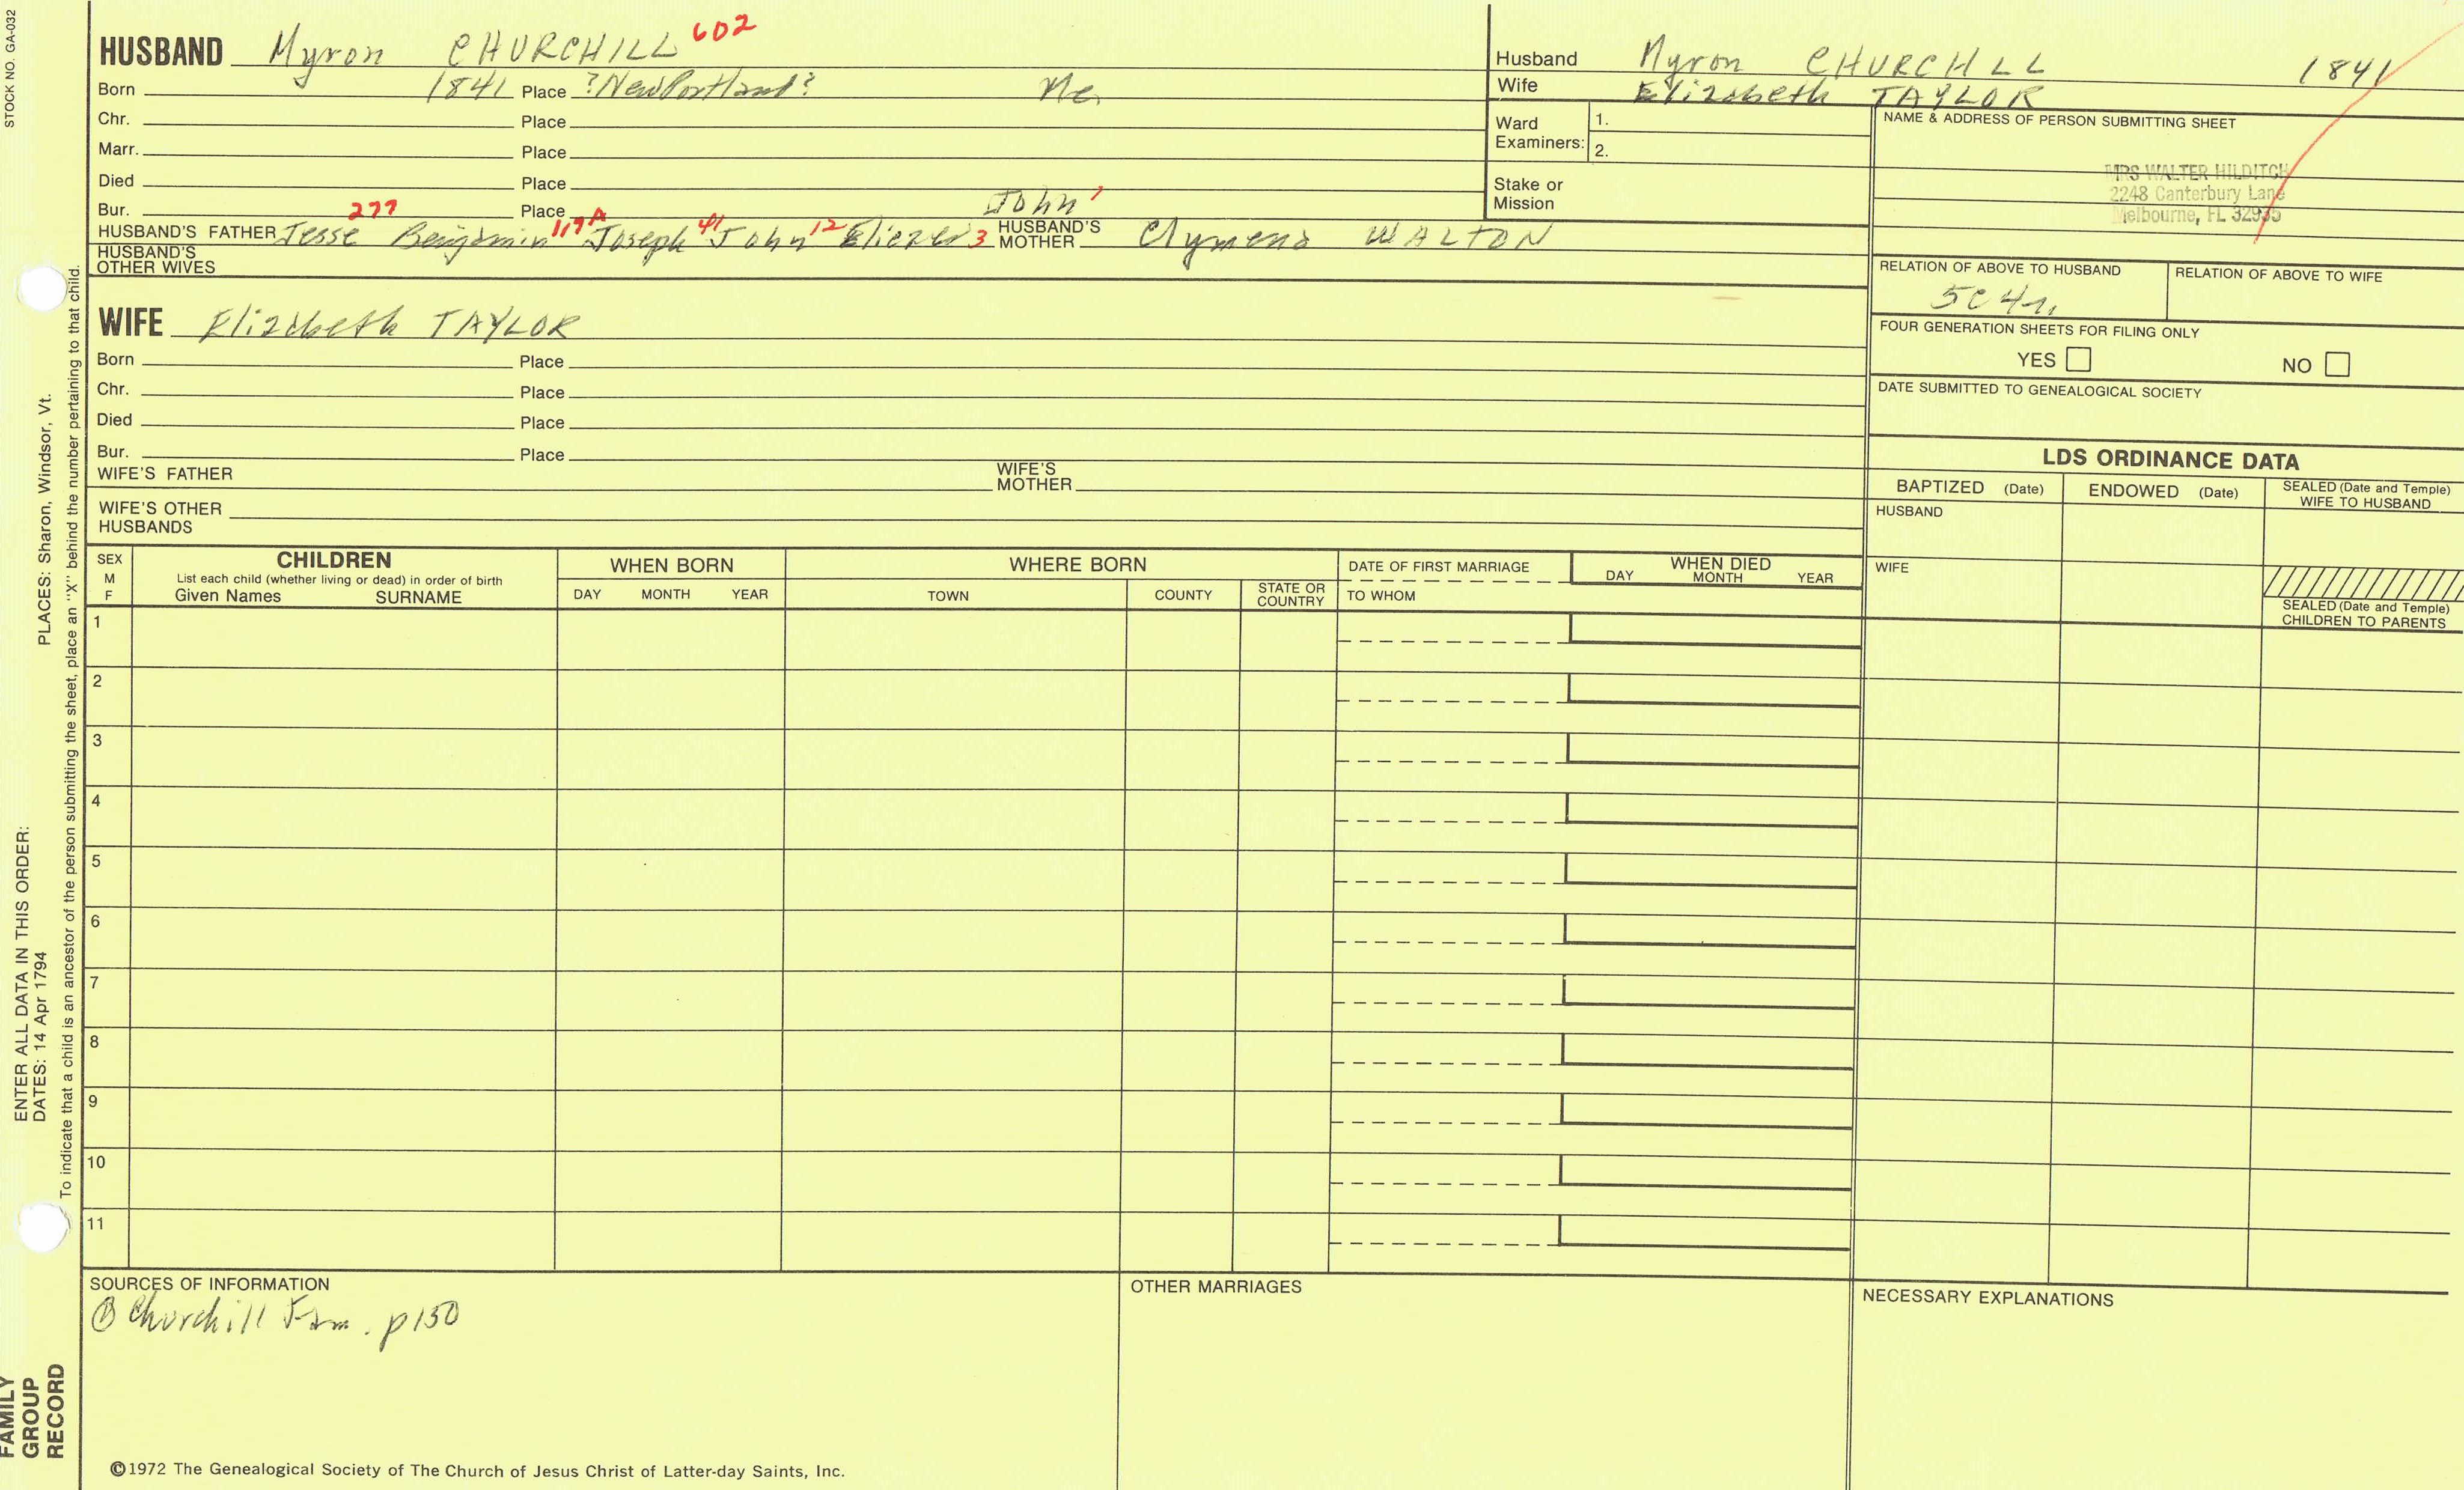 STOCK NO. GA-032
HUSBAND Myron CHURCHILL 602
Born 1841 Place ?NewPortland? Me.
Chr. Place
Marr. Place
Died Place
Bur. Place
John 1
HUSBAND'S FATHER Jesse 277 Benjamin 117A Joseph 41 John 12 Eliezer 3 HUSBAND'S MOTHER Clymena WALTON
HUSBAND'S OTHER WIVES
WIFE Elizabeth TAYLOR
Born Place
Chr. Place
Died Place
Bur. Place
WIFE'S FATHER WIFE'S MOTHER
WIFE'S OTHER HUSBANDS
Husband Myron CHURCHILL 1841
Wife Elizabeth TAYLOR
Ward Examiners: 1.
2.
Stake or Mission
NAME & ADDRESS OF PERSON SUBMITTING SHEET
MRS WALTER HILDITCH
2248 Canterbury Lane
Melbourne, FL 32935
RELATION OF ABOVE TO HUSBAND RELATION OF ABOVE TO WIFE
5C4r.
FOUR GENERATION SHEETS FOR FILING ONLY
YES NO
DATE SUBMITTED TO GENEALOGICAL SOCIETY
LDS ORDINANCE DATA
BAPTIZED (Date) ENDOWED (Date) SEALED (Date and Temple) WIFE TO HUSBAND
HUSBAND
WIFE
SEALED (Date and Temple) CHILDREN TO PARENTS
SEX M F CHILDREN WHEN BORN WHERE BORN DATE OF FIRST MARRIAGE WHEN DIED
List each child (whether living or dead) in order of birth
Given Names SURNAME DAY MONTH YEAR TOWN COUNTY STATE OR COUNTRY TO WHOM DAY MONTH YEAR
1
2
3
4
5
6
7
8
9
10
11
SOURCES OF INFORMATION
① Churchill Fam. p150
OTHER MARRIAGES
NECESSARY EXPLANATIONS
©1972 The Genealogical Society of The Church of Jesus Christ of Latter-day Saints, Inc.
ENTER ALL DATA IN THIS ORDER:
DATES: 14 Apr 1794 PLACES: Sharon, Windsor, Vt.
To indicate that a child is an ancestor of the person submitting the sheet, place an "X" behind the number pertaining to that child.
FAMILY
GROUP
RECORD